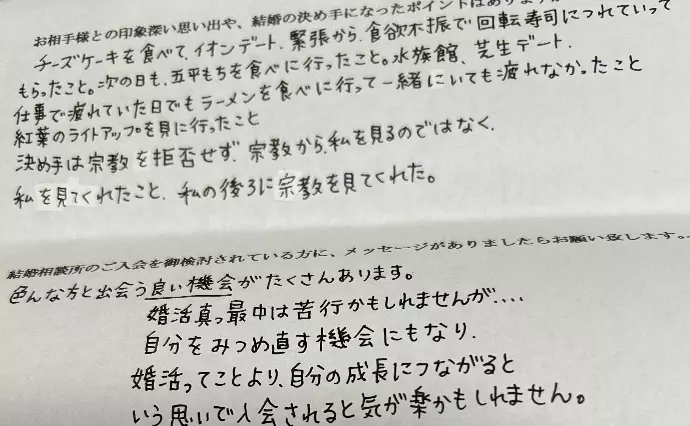 お相手様との印象深い思い出や、結婚の決め手になったポイントはありますか
チーズケーキを食べて、イオンデート、緊張から、食欲不振で回転寿司につれていって
もらったこと。次の日も、五平もちを食べに行ったこと。水族館、芝生デート、
仕事で疲れていた日でもラーメンを食べに行って一緒にいても疲れなかったこと
紅葉のライトアップを見に行ったこと
決め手は宗教を拒否せず、宗教から、私を見るのではなく、
私を見てくれたこと、私の後ろに宗教を見てくれた。
結婚相談所のご入会を御検討されている方に、メッセージがありましたらお願い致します。
色んな方と出会う良い機会がたくさんあります。
婚活真っ最中は苦行かもしれませんが....
自分をみつめ直す機会にもなり、
婚活ってことより、自分の成長につながると
いう思いで入会されると気が楽かもしれません。